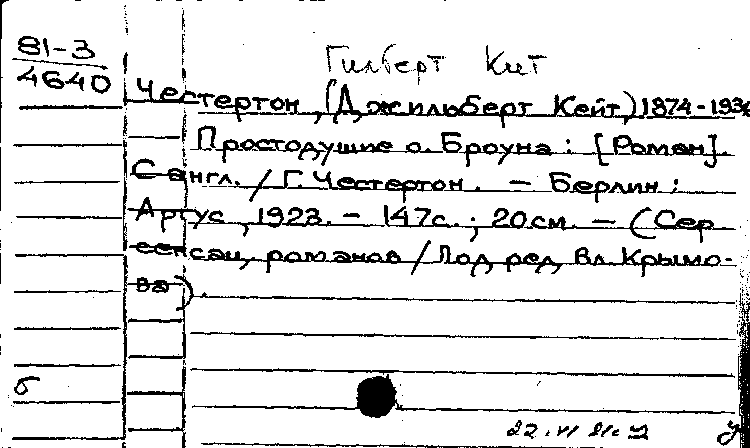 81-3
4640
Гилберт Кит
Честертон, (Джильберт Кейт) 1874-1936
Простодушие о. Броуна : [Роман].
С англ. / Г. Честертон. — Берлин :
Аргус, 1923. — 147с. ; 20см. — (Сер
сенсац. романов / Под ред. Вл. Крымо-
ва).
б